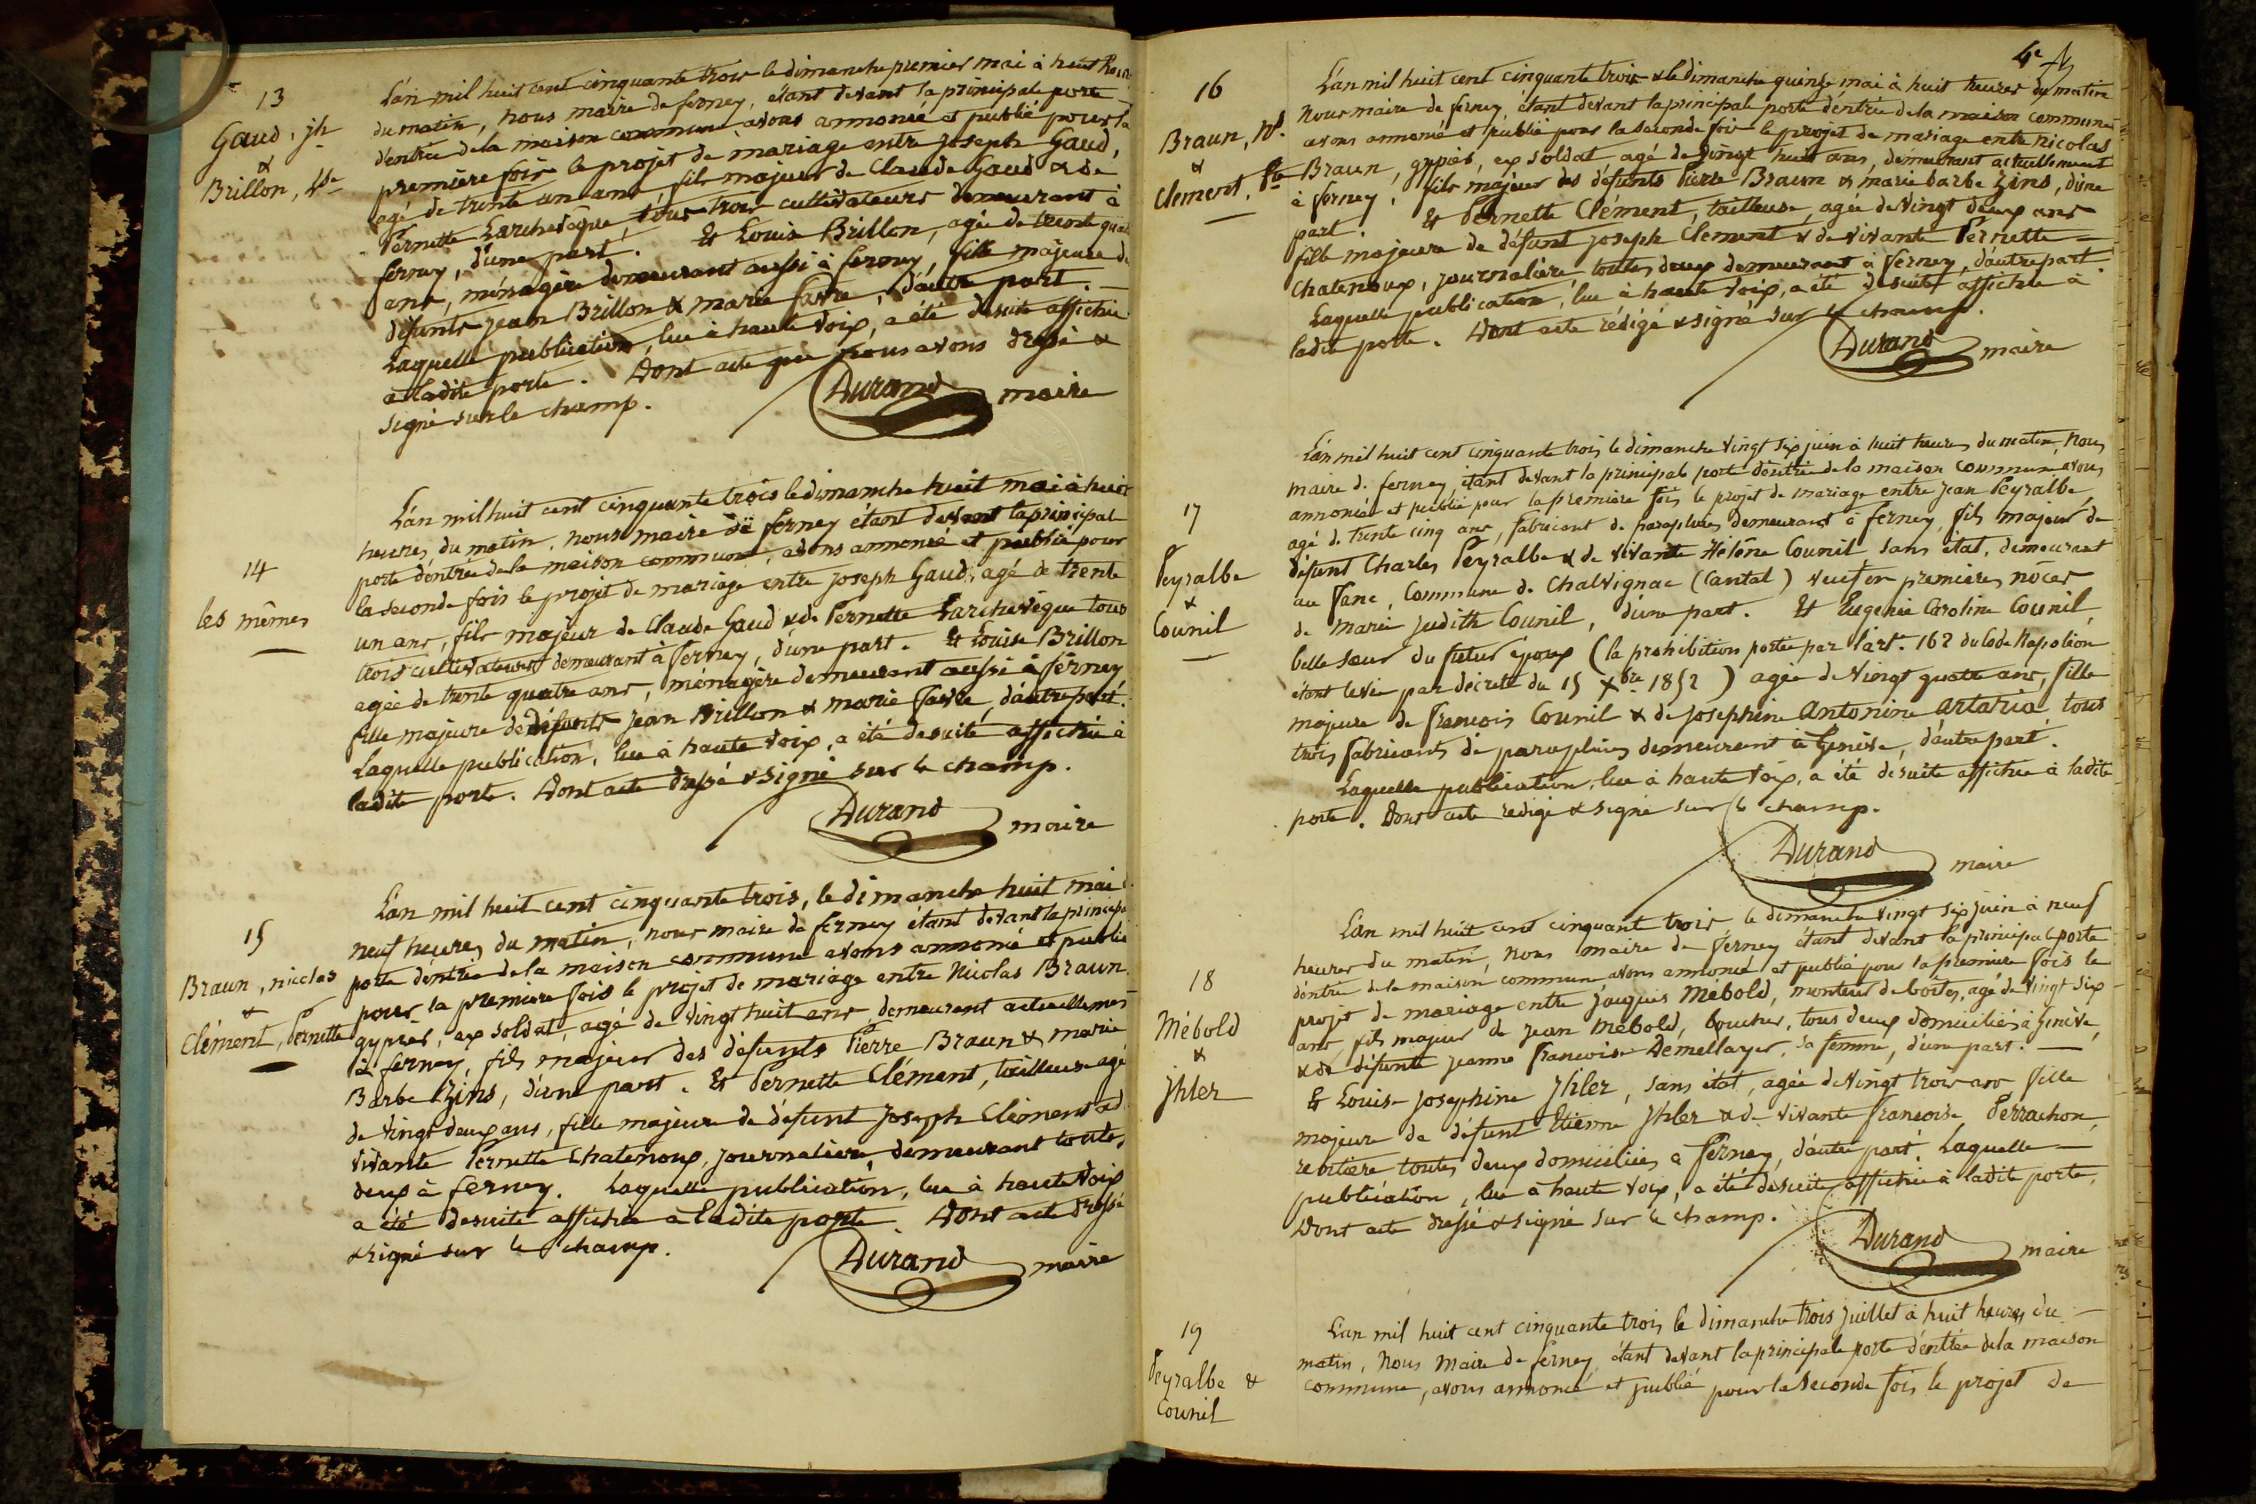 13
Gaud, jh
&
Brillon, Lse
L'an mil huit cent cinquante trois le dimanche premier mai à huit heures
du matin, nous maire de ferney, étant devant la principale porte
d'entrée de la maison commune avons annoncé et publié pour la
première fois le projet de mariage entre joseph Gaud,
agé de trente un ans, fils majeur de Claude Gaud & de
Pernette Larchevêque, tous trois cultivateurs demeurant à
ferney, d'une part. Et Louise Brillon, agée de trente quatre
ans, ménagère demeurant aussi à ferney, fille majeure de
défunts jean Brillon & marie favre, d'autre part.
Laquelle publication, lue à haute voix, a été desuite affichée
à ladite porte. Dont acte que nous avons dressé &
signé sur le champ.
Durand maire
14
les mêmes
L'an mil huit cent cinquante trois le dimanche huit mai à huit
heures du matin, nous maire de ferney étant devant la principale
porte d'entrée de la maison commune, avons annoncé et publié pour
la seconde fois le projet de mariage entre joseph Gaud, agé de trente
un ans, fils majeur de Claude Gaud & de Pernette Larchevêque tous
trois cultivateurs demeurant à ferney, d'une part. Et Louise Brillon
agée de trente quatre ans, ménagère demeurant aussi à ferney
fille majeure de défunts jean Brillon & marie favre, d'autre part.
Laquelle publication, lue à haute voix, a été desuite affichée à
ladite porte. Dont acte dressé & signé sur le champ.
Durand maire
15
Braun, nicolas
&
Clément, Pernette
L'an mil huit cent cinquante trois, le dimanche huit mai à
neuf heures du matin, nous maire de ferney étant devant la principale
porte d'entrée de la maison commune avons annoncé et publié
pour la première fois le projet de mariage entre Nicolas Braun
gypier, ex soldat, agé de vingt huit ans, demeurant actuellement
à ferney, fils majeur des défunts Pierre Braun & marie
Barbe Zins, d'une part. Et Pernette Clément, tailleuse agée
de vingt deux ans, fille majeure de défunt joseph Clément & de
vivante Pernette Chatenoux, journalière, demeurant toutes
deux à ferney. Laquelle publication, lue à haute voix
a été desuite affichée à ladite porte. Dont acte dressé
& signé sur le champ.
Durand maire
4e
16
Braun, Ns.
&
Clement, Pte
L'an mil huit cent cinquante trois & le dimanche quinze mai à huit heures du matin
nous maire de ferney étant devant la principale porte d'entrée de la maison commune
avons annoncé et publié pour la seconde fois le projet de mariage entre nicolas
Braun, gypier, ex soldat agé de vingt huit ans, demeurant actuellement
à ferney, fils majeur des défunts Pierre Braun & marie barbe Zins, d'une
part. Et Pernette Clément, tailleuse, agée de vingt deux ans
fille majeure de défunt joseph Clement & de vivante Pernette
Chatenoux, journalière, toutes deux demeurant à ferney, d'autre part.
Laquelle publication, lue à haute voix, a été desuite affichée à
ladite porte. Dont acte rédigé & signé sur le champ.
Durand maire
17
Peyralbe
&
Counil
L'an mil huit cent cinquante trois le dimanche vingt six juin à huit heures du matin, Nous
maire de ferney étant devant la principale porte d'entrée de la maison commune avons
annoncé et publié pour la première fois le projet de mariage entre jean Peyralbe,
agé de trente cinq ans, fabricant de parapluies demeurant à ferney, fils majeur de
défunt Charles Peyralbe & de vivante Hélène Counil sans état, demeurant
au fanc, Commune de Chalvignac (Cantal) veuf en premières nôces
de marie judith Counil, d'une part. Et Eugenie Caroline Counil,
belle sœur du futur époux (la prohibition portée par l'art. 162 du Code Napoléon
étant levée par décret du 15 Xbre 1852) agée de vingt quatre ans, fille
majeure de françois Counil & de josephine Antonine Artaria, tous
trois fabricants de parapluies demeurant à Genève, d'autre part.
Laquelle publication, lue à haute voix, a été desuite affichée à ladite
porte. Dont acte redigé & signé sur le champ.
Durand maire
18
Mébold
&
jhler
L'an mil huit cent cinquante trois le dimanche vingt six juin à neuf
heures du matin, nous maire de ferney étant devant la principale porte
d'entrée de la maison commune avons annoncé et publié pour la première fois le
projet de mariage entre jacques Mébold, monteur de boites, agé de vingt six
ans fils majeur de jean Mébold, boucher, tous deux domiciliés à Genève,
& de défunte jeanne françoise Demellayer, sa femme, d'une part.
Et Louise josephine jhler, sans état, agée de vingt trois ans fille
majeure de défunt Etienne jhler & de vivante françoise Perrachon,
rentière toutes deux domiciliées à ferney, d'autre part. Laquelle
publication, lue à haute voix, a été desuite affichée à ladite porte.
Dont acte dressé & signé sur le champ.
Durand maire
19
Peyralbe &
Counil
L'an mil huit cent cinquante trois le dimanche trois juillet à huit heures du
matin, Nous Maire de ferney, étant devant la principale porte d'entrée de la maison
commune, avons annoncé et publié pour la seconde fois le projet de